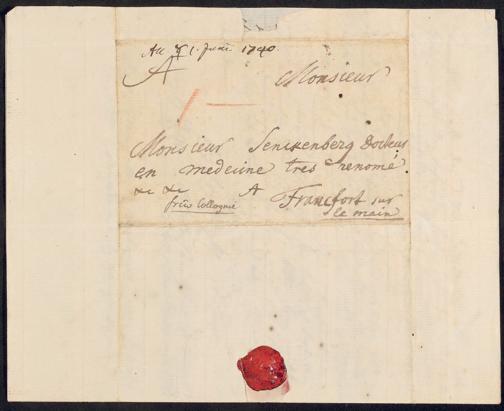 1. Junii 1740.
A Monsieur
Monsieur Senckenberg Docteur
en medecine tres renomé
&c &c A Francfort sur
le main